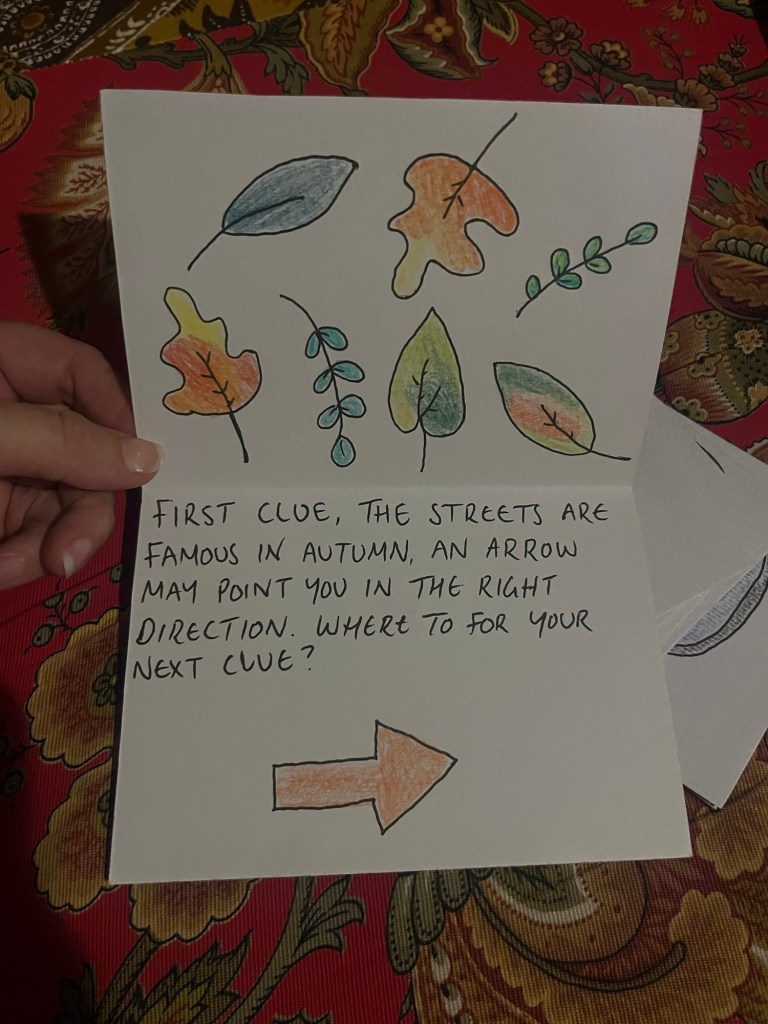 FIRST CLUE, THE STREETS ARE
FAMOUS IN AUTUMN, AN ARROW
MAY POINT YOU IN THE RIGHT
DIRECTION. WHERE TO FOR YOUR
NEXT CLUE?